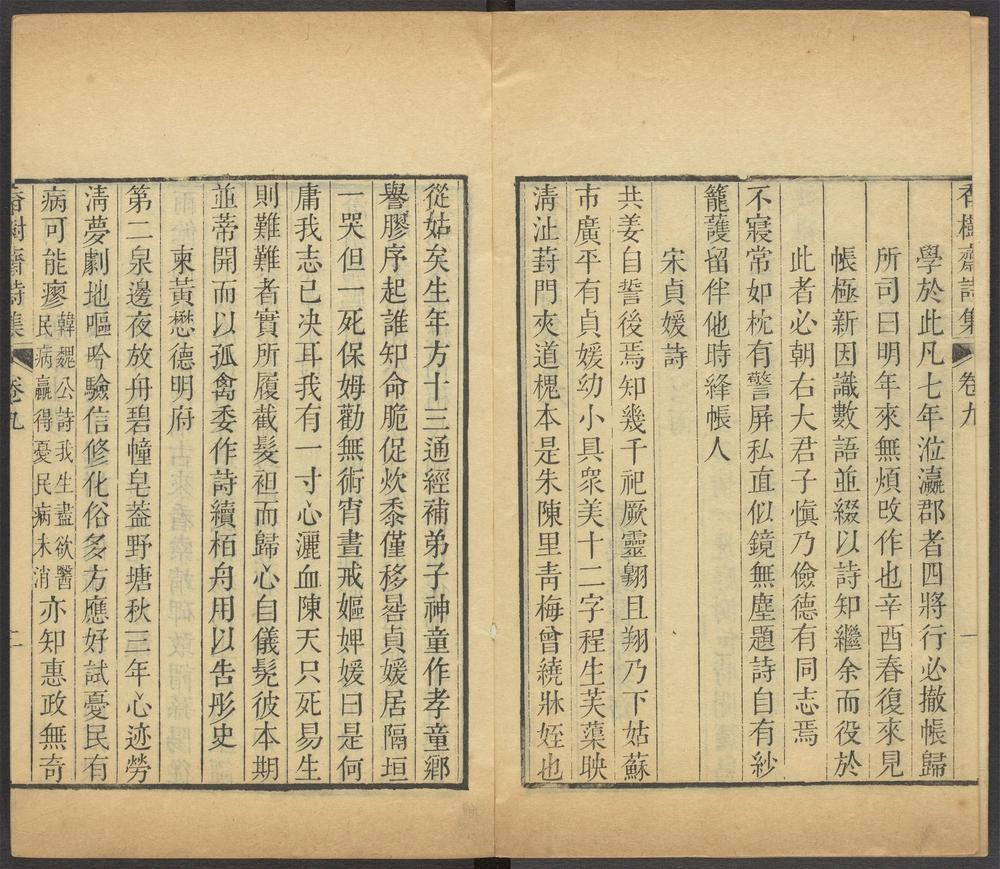 香樹齋詩集 卷九 一
學於此凡七年涖瀛郡者四將行必撤帳歸
所司曰明年來無煩改作也辛酉春復來見
帳極新因識數語並綴以詩知繼余而役於
此者必朝右大君子愼乃儉德有同志焉
不寢常如枕有警屏私直似鏡無塵題詩自有紗
籠護留伴他時絳帳人
宋貞媛詩
共姜自誓後焉知幾千祀厥靈翱且翔乃下姑蘇
市廣平有貞媛幼小具衆美十二字程生芙蕖映
淸沚葑門夾道槐本是朱陳里靑梅曾繞牀姪也
從姑矣生年方十三通經補弟子神童作孝童鄉
譽膠序起誰知命脆促炊黍僅移晷貞媛居隔垣
一哭但一死保姆勸無術宵晝戒嫗婢媛曰是何
庸我志已决耳我有一寸心灑血陳天只死易生
則難難者實所履截髮袒而歸心自儀髧彼本期
並蒂開而以孤禽委作詩續栢舟用以告彤史
柬黃懋德明府
第二泉邊夜放舟碧幢皂葢野塘秋三年心迹勞
淸夢劇地嘔吟驗信修化俗多方應好試憂民有
病可能瘳韓魏公詩我生盡欲醫民病羸得憂民病未消亦知惠政無奇
香樹齋詩集 卷九 二